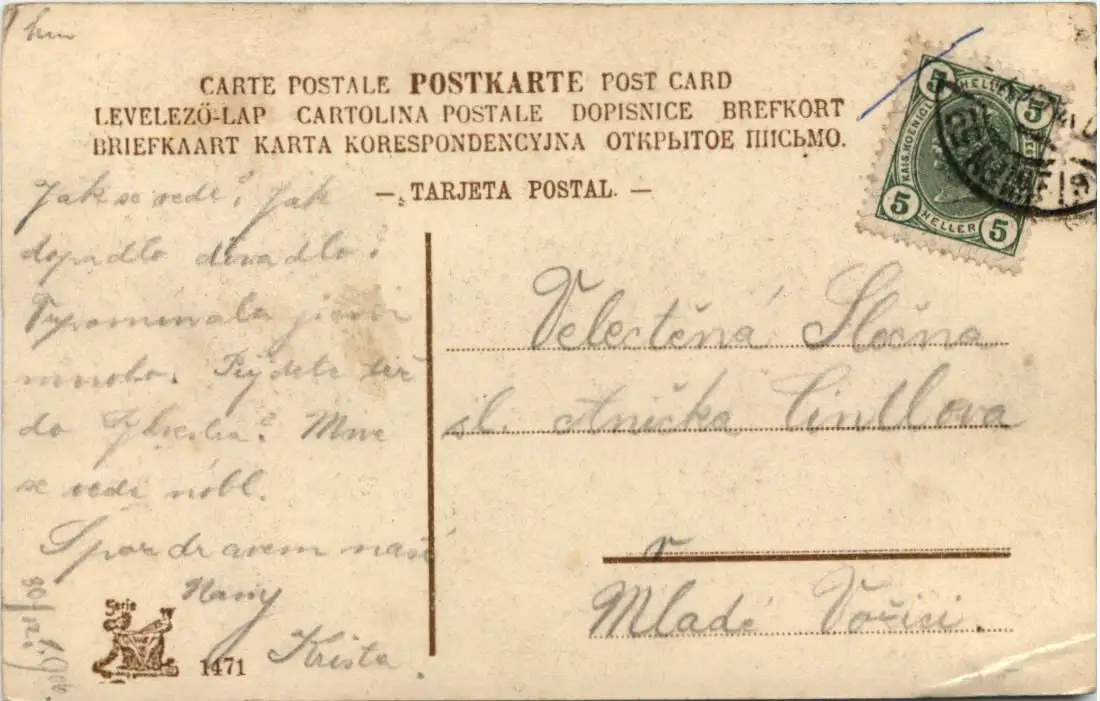 CARTE POSTALE POSTKARTE POST CARD
LEVELEZŐ-LAP CARTOLINA POSTALE DOPISNICE BREFKORT
BRIEFKAART KARTA KORESPONDENCYJNA ОТКРЫТОЕ ПИСЬМО.
— TARJETA POSTAL. —
5 HELLER 5
KAIS. KOENIGL.
5 HELLER 5
Jak se vede? Jak
dopadlo divadlo?
Vzpomínala jsem
mnoho. Přijdete též
do? Mne
se vede nobl.
S pozdravem
Krista
Velectěná Slečna
sl. Anička Cindlova
v
Mladé Vožici.
Serie
1471